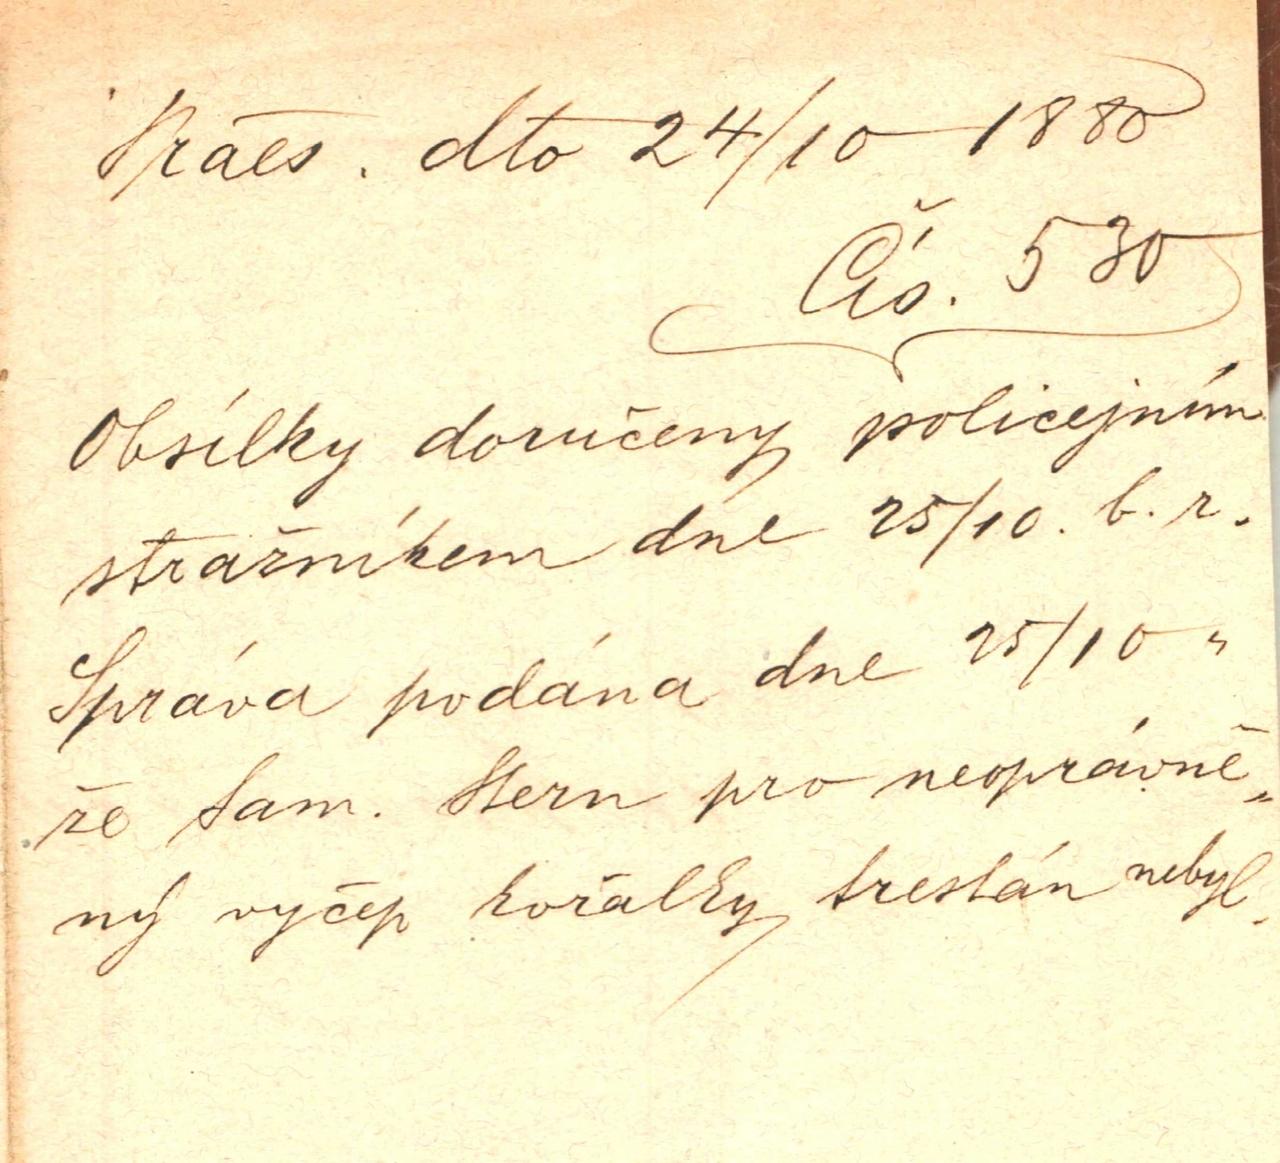 Práes. dto 24/10 1880
Čís. 530
Obsílky doručeny policejním
strážníkem dne 25/10. b. r.
Správa podána dne 25/10 "
že Sam. Stern pro neoprávně„
ný výčep kořalky trestán nebyl.